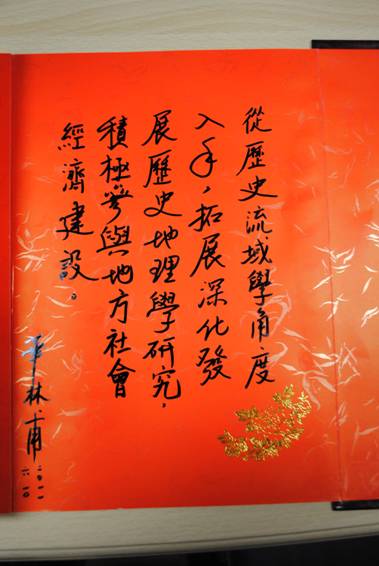 從歷史流域學角度
入手，拓展深化發
展歷史地理學研究，
積極參與地方社會
經濟建設。
华林甫